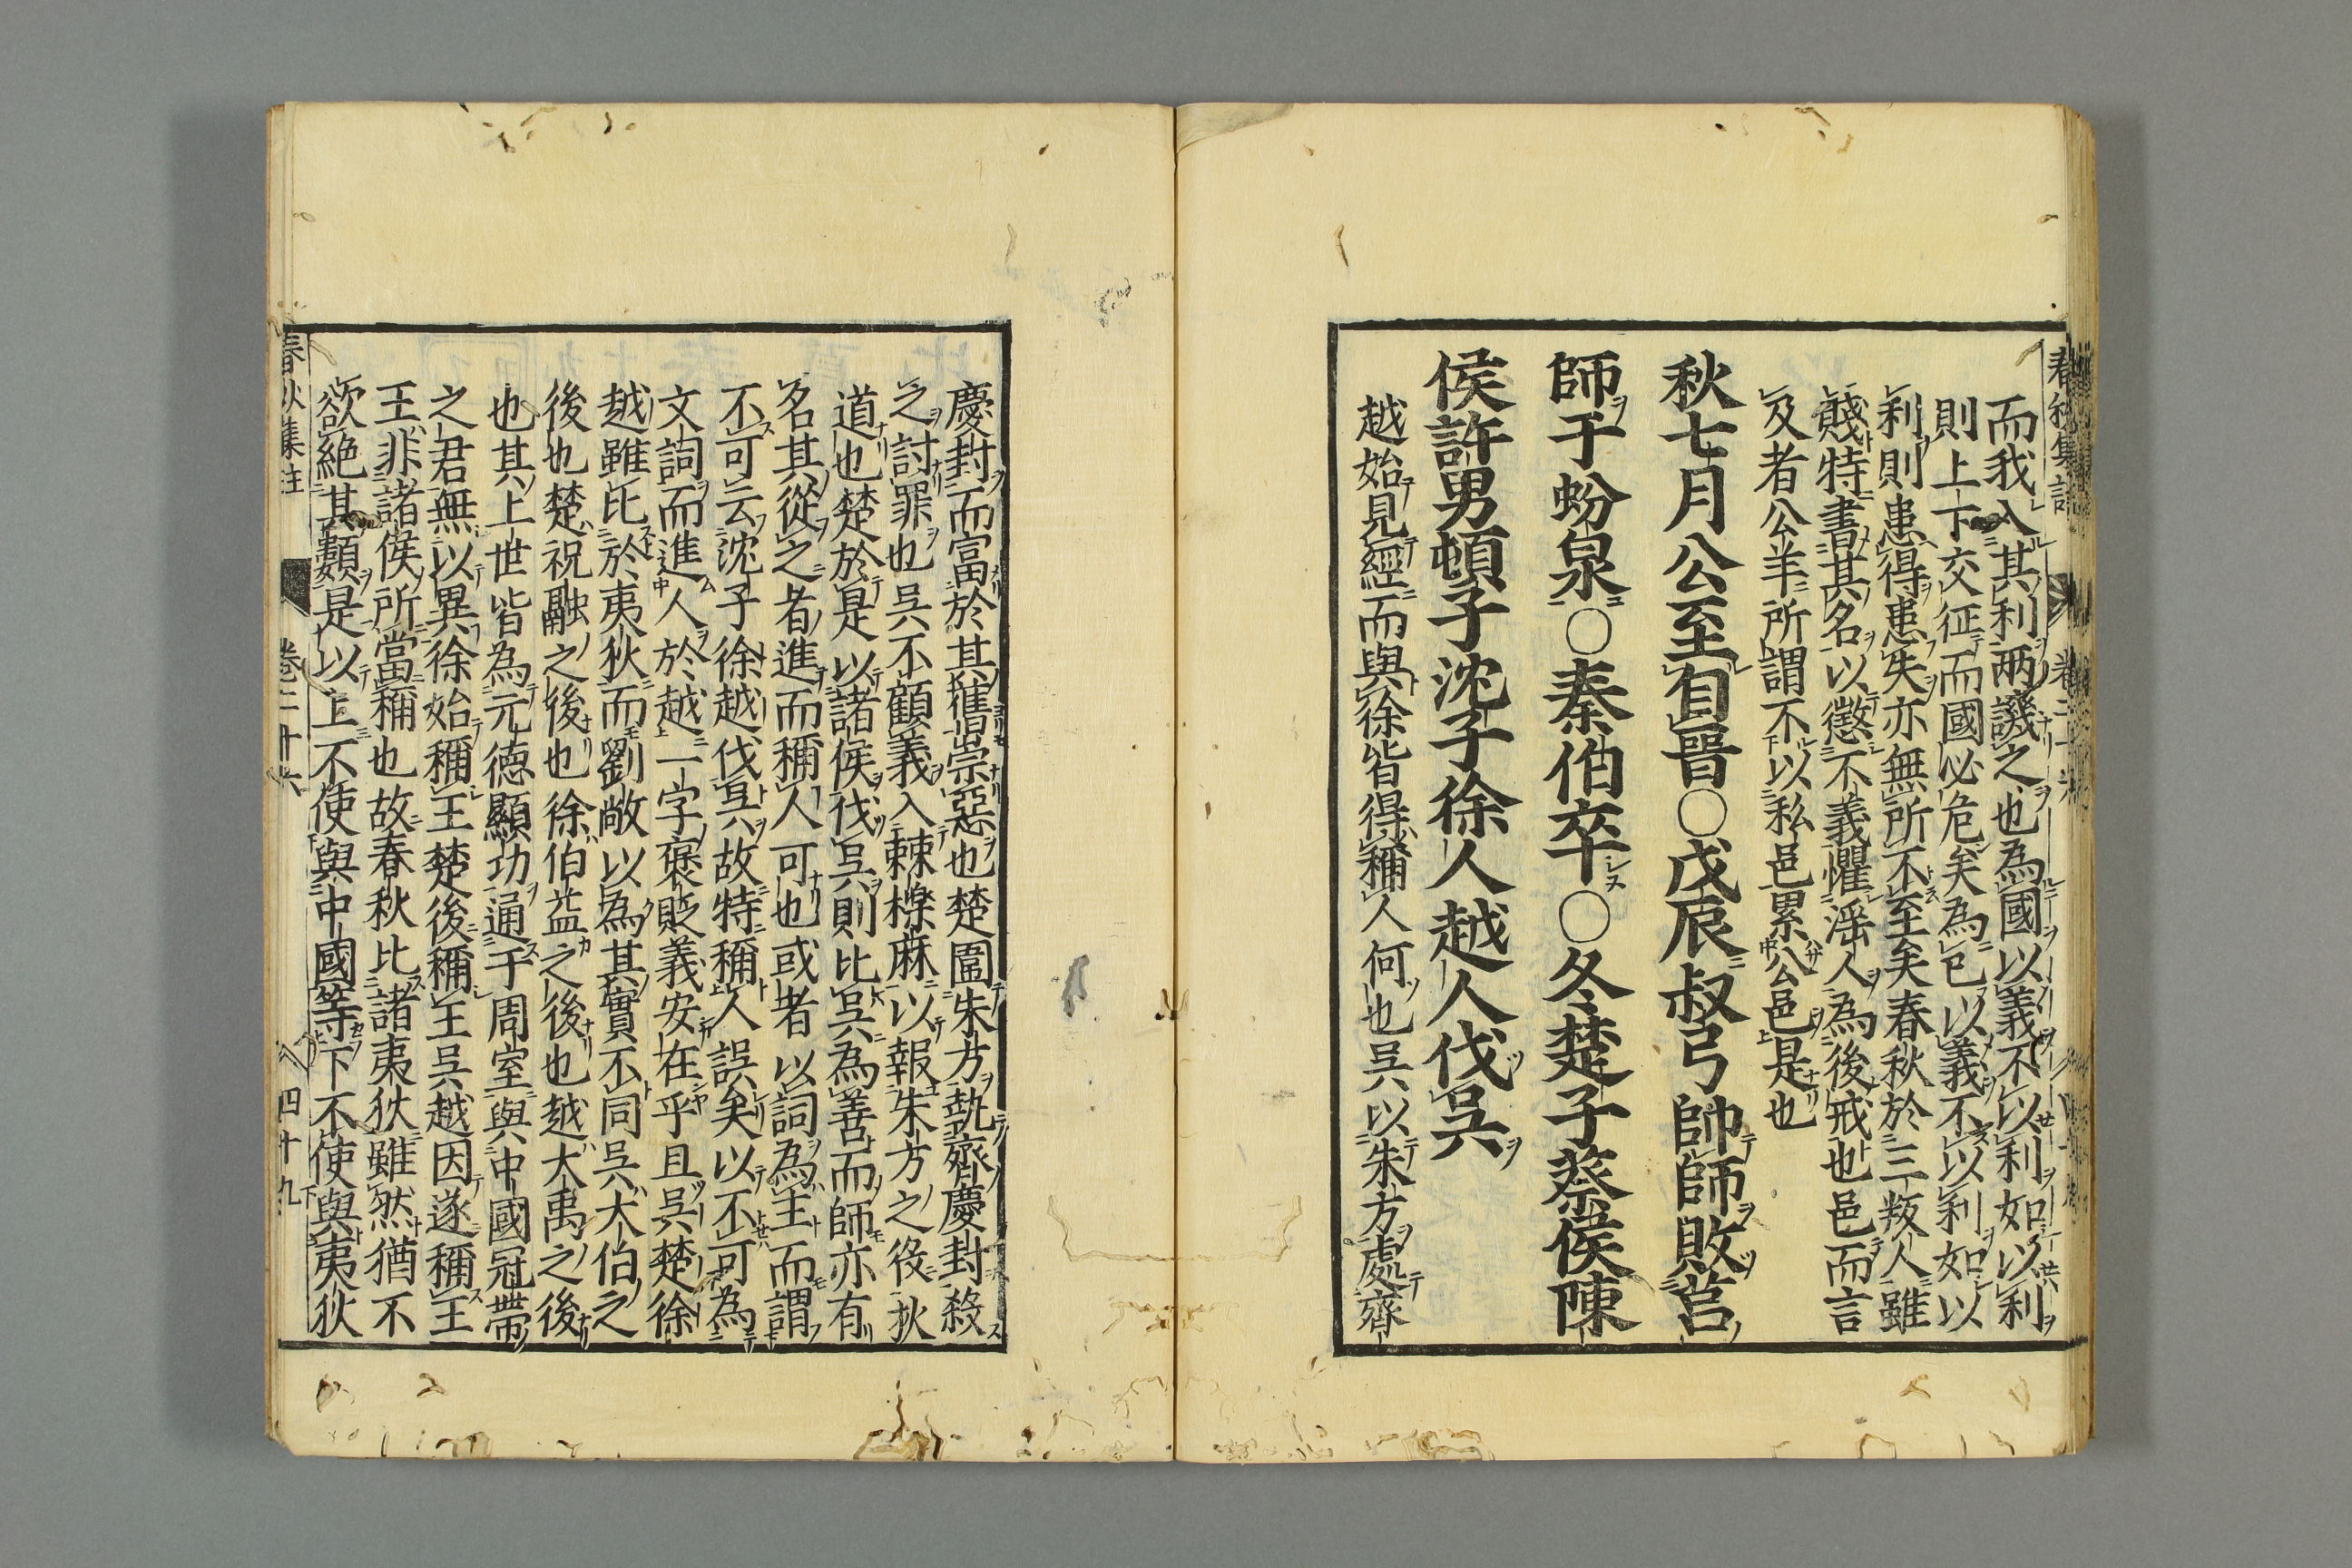 而我入其利兩譏之也為國以義不以利如以利
則上下交征而國必危矣為已以義不以利如以
利則患得患失亦無所不至矣春秋於三叛人雖
賤特書其名以懲不義懼滛人為後戒也邑而言
及者公羊所謂不以私邑累公邑是也
秋七月公至自晉○戊辰叔弓帥師敗莒
師于蚡泉○秦伯卒○冬楚子蔡侯陳
侯許男頓子沈子徐人越人伐吳
越始見經而與徐皆得稱人何也吳以朱方處齊
慶封而富於其舊崇惡也楚圍朱方執齊慶封殺
之討罪也吳不顧義入棘櫟麻以報朱方之役狄
道也楚於是以諸侯伐吳則比吳為善而師亦有
名其從之者進而稱人可也或者以詞為主而謂
不可云沈子徐越伐吳故特稱人誤矣以不可為
文詞而進人於越一字褒貶義安在乎且吳楚徐
越雖比於夷狄而劉敞以為其實不同吳大伯之
後也楚祝融之後也徐伯益之後也越大禹之後
也其上世皆為元德顯功通于周室與中國冠帶
之君無以異徐始稱王楚後稱王吳越因遂稱王
王非諸侯所當稱也故春秋比諸夷狄雖然猶不
欲絕其類是以上不使與中國等下不使與夷狄
春秋集註 卷二十六 四十九